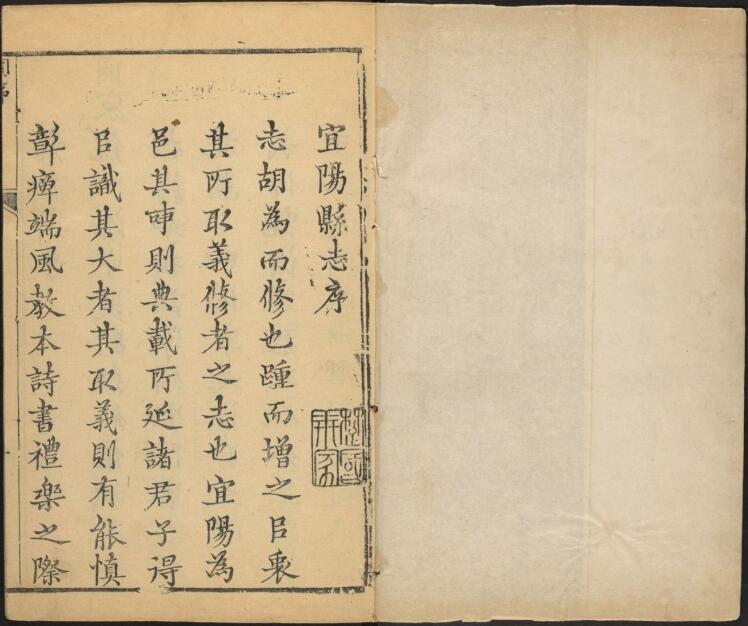 宜陽縣志序
志胡為而修也踵而增之㠯衷
其所取義修者之志也宜陽為
邑其時則典載所延諸君子得
㠯識其大者其取義則有能慎
彰癉端風教本詩書禮樂之際